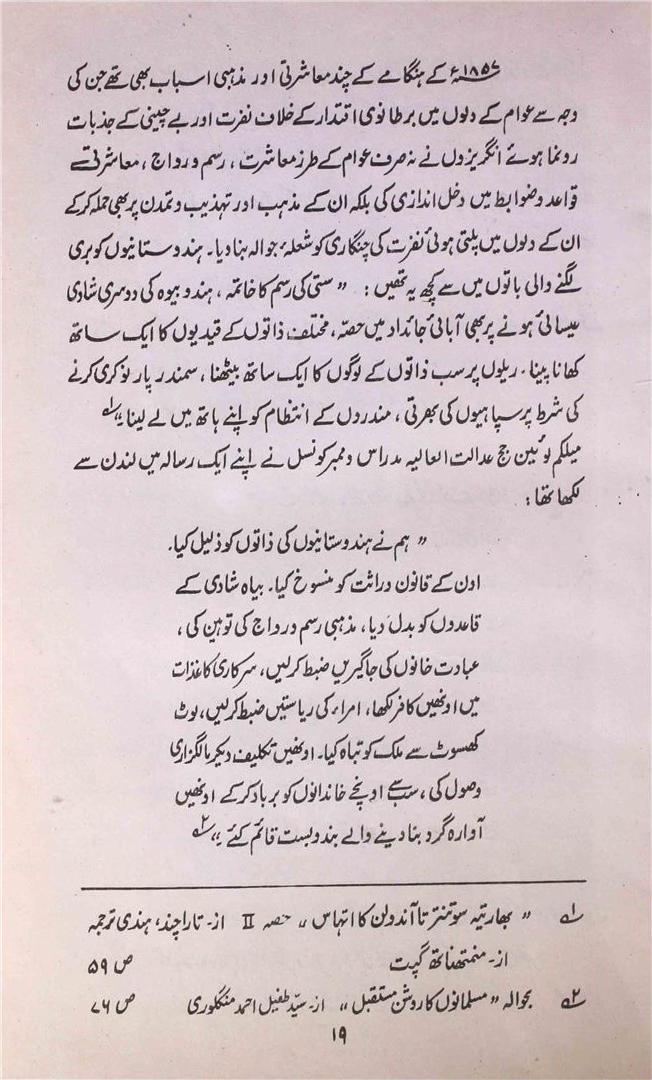 ۱۸۵۷ء کے ہنگامے کے چند معاشرتی اور مذہبی اسباب بھی تھے جن کی
وجہ سے عوام کے دلوں میں برطانوی اقتدار کے خلاف نفرت اور بے چینی کے جذبات
رونما ہوئے انگریزوں نے نہ صرف عوام کے طرز معاشرت ، رسم و رواج ، معاشرتی
قواعد و ضوابط میں دخل اندازی کی بلکہ ان کے مذہب اور تہذیب و تمدن پر بھی حملہ کر کے
ان کے دلوں میں پلتی ہوئی نفرت کی چنگاری کو شعلۂ جوالہ بنا دیا۔ ہندوستانیوں کو بری
لگنے والی باتوں میں سے کچھ یہ تھیں : " ستی کی رسم کا خاتمہ ، ہندو بیوہ کی دوسری شادی
عیسائی ہونے پر بھی آبائی جائداد میں حصہ ، مختلف ذاتوں کے قیدیوں کا ایک ساتھ
کھانا پینا ۔ ریلوں پر سب ذاتوں کے لوگوں کا ایک ساتھ بیٹھنا ، سمندر پار نوکری کرنے
کی شرط پر سپاہیوں کی بھرتی ، مندروں کے انتظام کو اپنے ہاتھ میں لے لینا ،،۱ے
میلکم لوئین جج عدالت العالیہ مدراس و ممبر کونسل نے اپنے ایک رسالہ میں لندن سے
لکھا تھا :
" ہم نے ہندوستانیوں کی ذاتوں کو ذلیل کیا۔
اون کے قانون وراثت کو منسوخ کیا۔ بیاہ شادی کے
قاعدوں کو بدل دیا، مذہبی رسم و رواج کی توہین کی ،
عبادت خانوں کی جاگیریں ضبط کر لیں ، سرکاری کاغذات
میں اونھیں کافر لکھا، امراء کی ریاستیں ضبط کر لیں، لوٹ
کھسوٹ سے ملک کو تباہ کیا۔ اونھیں تکلیف دیکر مالگزاری
وصول کی ، سب سے اونچے خاندانوں کو برباد کر کے اونھیں
آوارہ گرد بنا دینے والے بندوبست قائم کئے ،،۲ے
۱ے " بھارتیہ سوتنترتا آندولن کا اتہاس ،، حصہ II از۔ تارا چند ، ہندی ترجمہ
از۔ منمتھناتھ گپت ص ۵۹
۲ے بحوالہ " مسلمانوں کا روشن مستقبل ،، از۔ سید طفیل احمد منگلوری ص ۷۶
۱۹